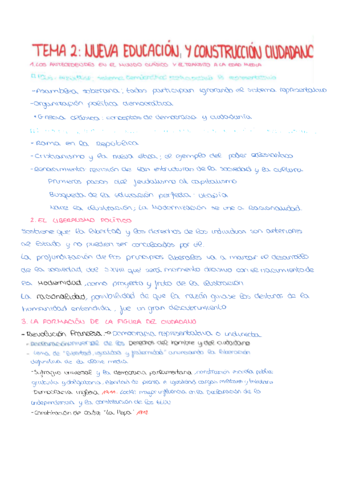 TEMA 2: NUEVA EDUCACIÓN, Y CONSTRUCCIÓN CIUDADANC
1. LOS ANTECEDENTES EN EL MUNDO CLÁSICO Y EL TRÁNSITO A LA EDAD MEDIA
-Asamblea soberana, todos participan ignorando el sistema representativo
-Organización política democrática
• Grecia clásica: conceptos de democracia y ciudadanía
-Roma en la República
- Cristianismo y la nueva ética, el ejemplo del poder eclesiástico
-Renacimiento: revisión de las estructuras de la sociedad y la cultura.
Primeros pasos del feudalismo al capitalismo
Búsqueda de la educación perfecta utopía
Nace la ilustración, la modernización se une a racionalidad.
2. EL LIBERALISMO POLÍTICO
Sostiene que la libertad y los derechos de los individuos son anteriores
al Estado y no pueden ser conculcados por él.
La profundización de los principios liberales va a marcar el desarrollo
de la sociedad del S.XVIII que será momento decisivo con el nacimiento de
la Modernidad, como proyecto y fruto de la ilustración
La racionalidad, posibilidad de que la razón guiase los destinos de la
humanidad entendida, fue un gran descubrimiento
3. LA FORMACIÓN DE LA FIGURA DEL CIUDADANO
- Revolución Francesa → Democracia representativa o indirecta
de los Derechos del hombre y del ciudadano
- Lema de "libertad, igualdad y fraternidad" anunciando la liberación
definitiva de la clase media
-Sufragio universal y la democracia parlamentaria,
gratuita y obligatoria, libertad de prensa e igualdad, cargas militares y
Democracia inglesa, influencia en la Declaración de la
independencia y la constitución de los EEUU
-Constitución de Cádiz "La Pepa" 1812